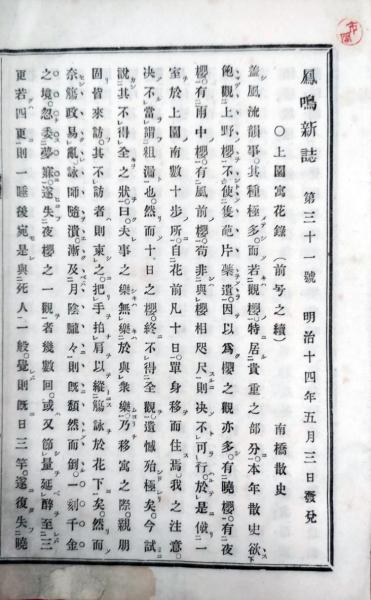 鳳鳴新誌 第三十一號 明治十四年五月三日發兌
○上園寓花錄(前号之續) 南橋散史
蓋風流韻事。其種極多。而若觀櫻。特居貴重之部分。本年散史欲
飽觀上野櫻。不使後葩片蘂遺。因以為櫻之觀亦多。有曉櫻。有夜
櫻。有雨中櫻。有風前櫻。苟非與櫻相咫尺。則决不可行。於是僦一
室於上園南數十步所。自花前凡十日。單身移而住焉。我之注意。
决不當謂粗漏也。然而十日之櫻。終不得全觀。遺憾殆極矣。今試
說其不得全之狀。曰。夫事之樂。無樂於與衆樂。乃移寓之際。親朋
固皆來訪。其不訪者則柬之。把手拍肩以縱觴詠於花下矣。然而
奈觴政易亂。詠師隨潰。漸及月陰朧々。則既頹然而倒。一刻千金
之境。忽委夢寐。遂失夜櫻之一觀者幾數回。或又節量延醉至三
更若四更。則一睡後宛是與死人一般。覺則既日三竿。遂復失曉